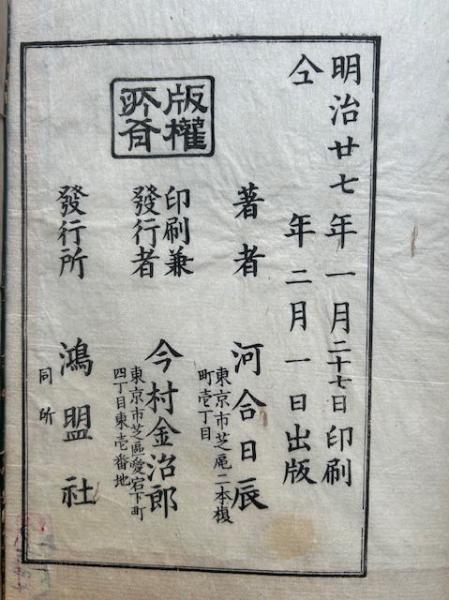 明治廿七年一月二十七日印刷
仝年二月一日出版
版權所有
著者
河合日辰
東京市芝區二本榎
町壱丁目
印刷兼
發行者
今村金治郎
東京市芝區愛宕下町
四丁目東壱番地
發行所
鴻盟社
同所